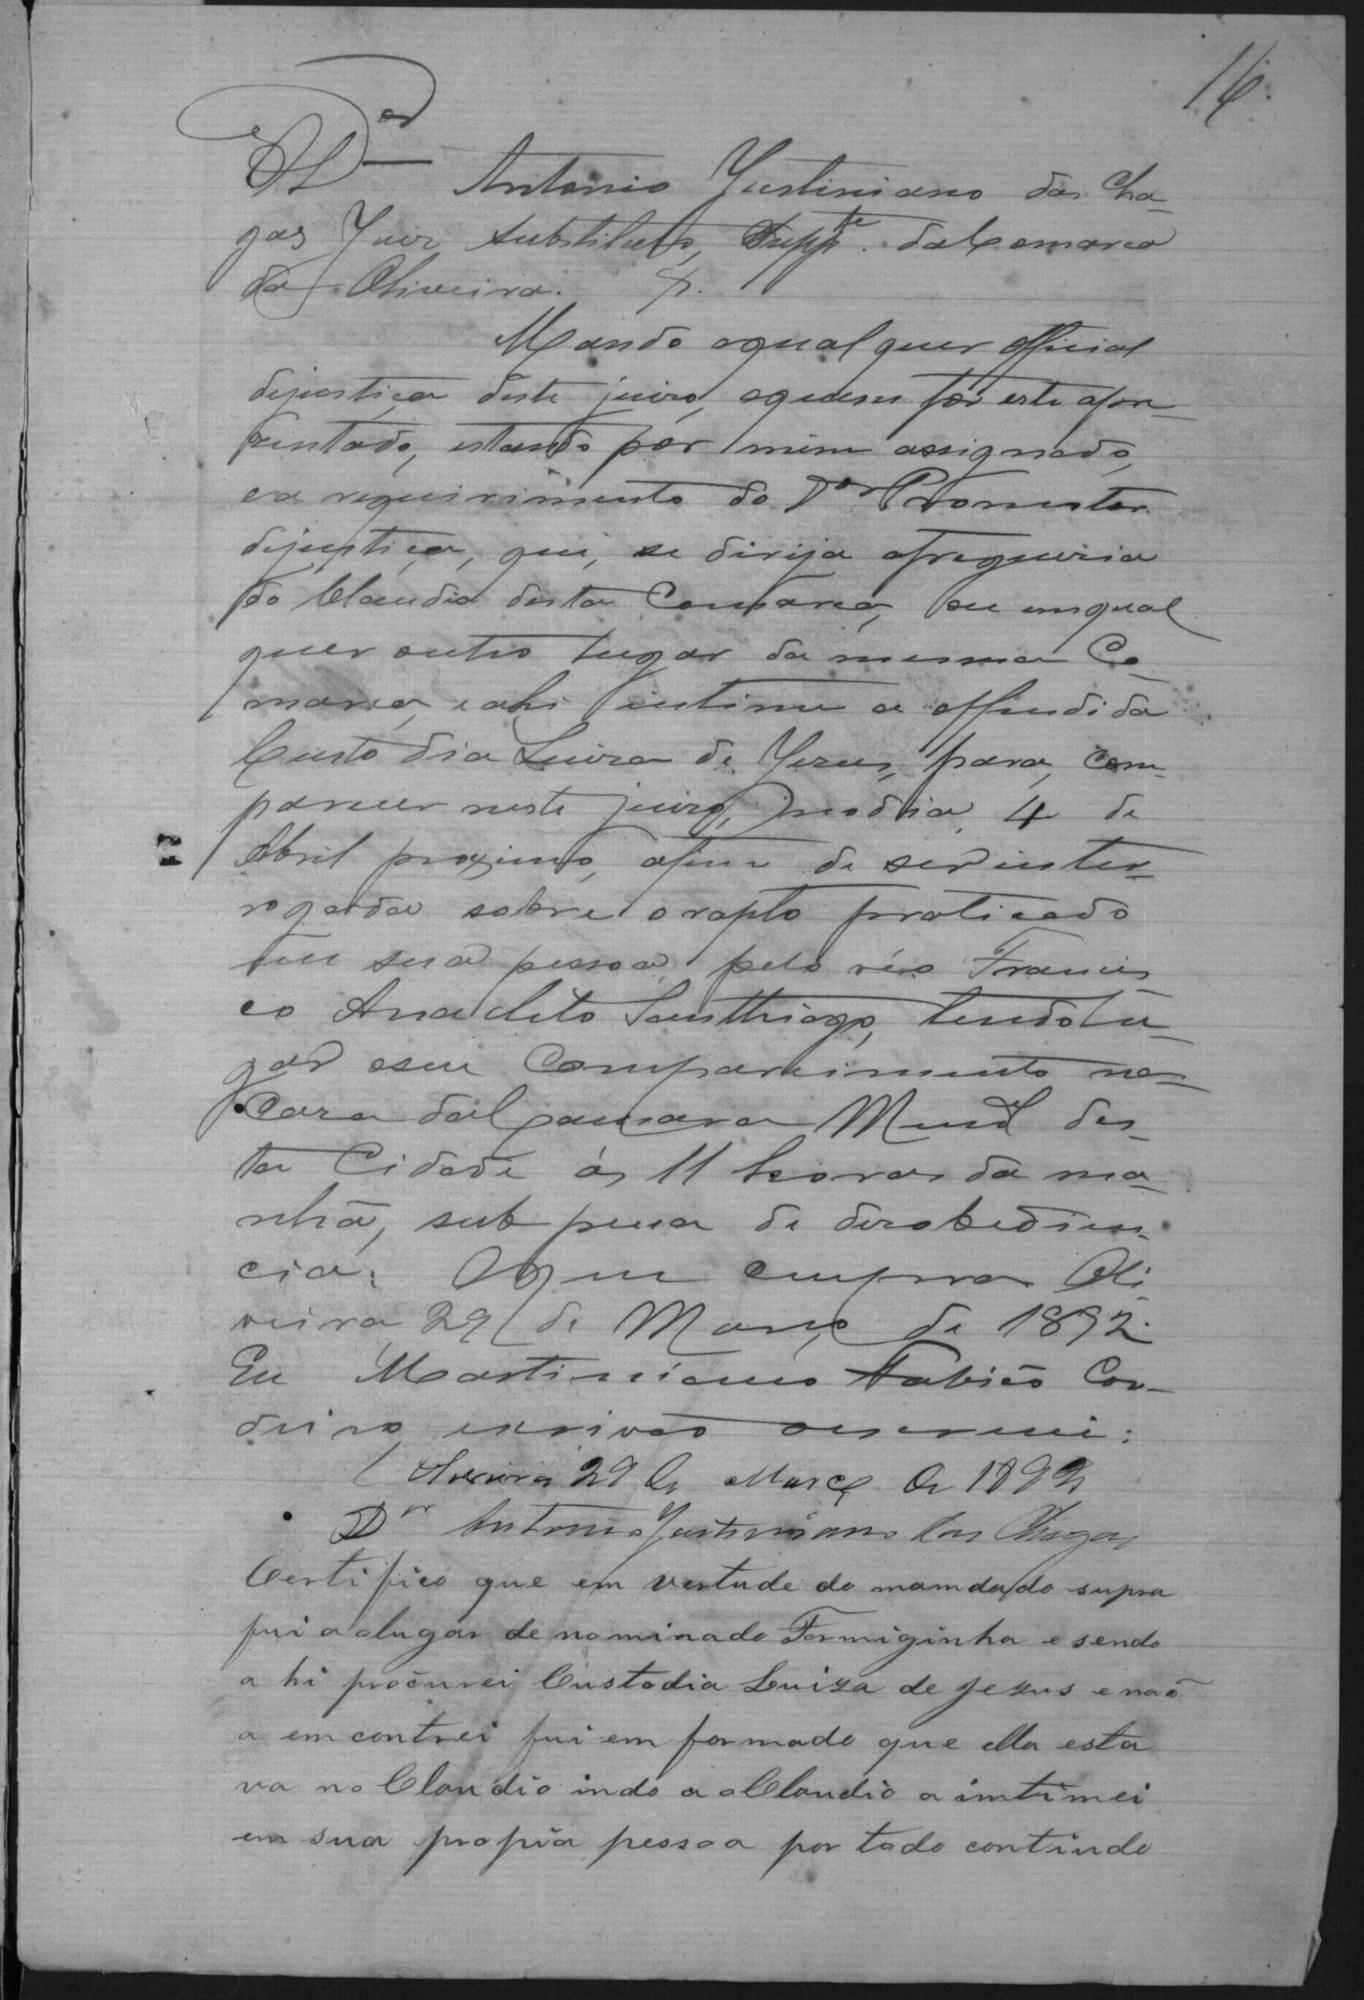 16.
O Dor Antonio Justiniano das Cha-
gas Juiz substituto, Suppte. da Comarca
da Oliveira. &.
Mando aqual quer official
dejustiça deste juizo, aquem fôr este apre-
zentado, estando por mim assignado,
ea requirimento do Dor Promotor
dejustiça, que, se dirija afreguezia
do Claudio desta Comarca, ou emqual
quer outro lugar da mesma Co-
marca, e ahi intime a offendida
Custodia Luiza de Jezus, para, com-
parecer neste juizo, nodia 4 de
Abril proximo, afim de ser inter-
rogada sobre o rapto praticado
em sua pessoa pelo réo Francis-
co Anacleto Santthiago, tendo lu-
gar oseu Comparecimento na
Caza da Camara Munal des-
ta Cidade ás 11 horas da ma-
nhã, sub pena de desobedien-
cia. Oque cumpra Oli-
veira 29 de Março de 1892.
Eu Martiniano Fabião Cor-
deiro, escrivão oescrevi.
Oliveira 29 de Março de 1892
Dr Antonio Justiniano das Chagas
Certifico que em vertude do mamdado supra
fui a olugar denominado Formiginha e sendo
a hi procurei Custodia Luiza de Jezus e naõ
a em contrei fui em formado que ella esta
va no Claudio indo a o Claudio a imtimei
em sua propia pessoa por todo contiudo